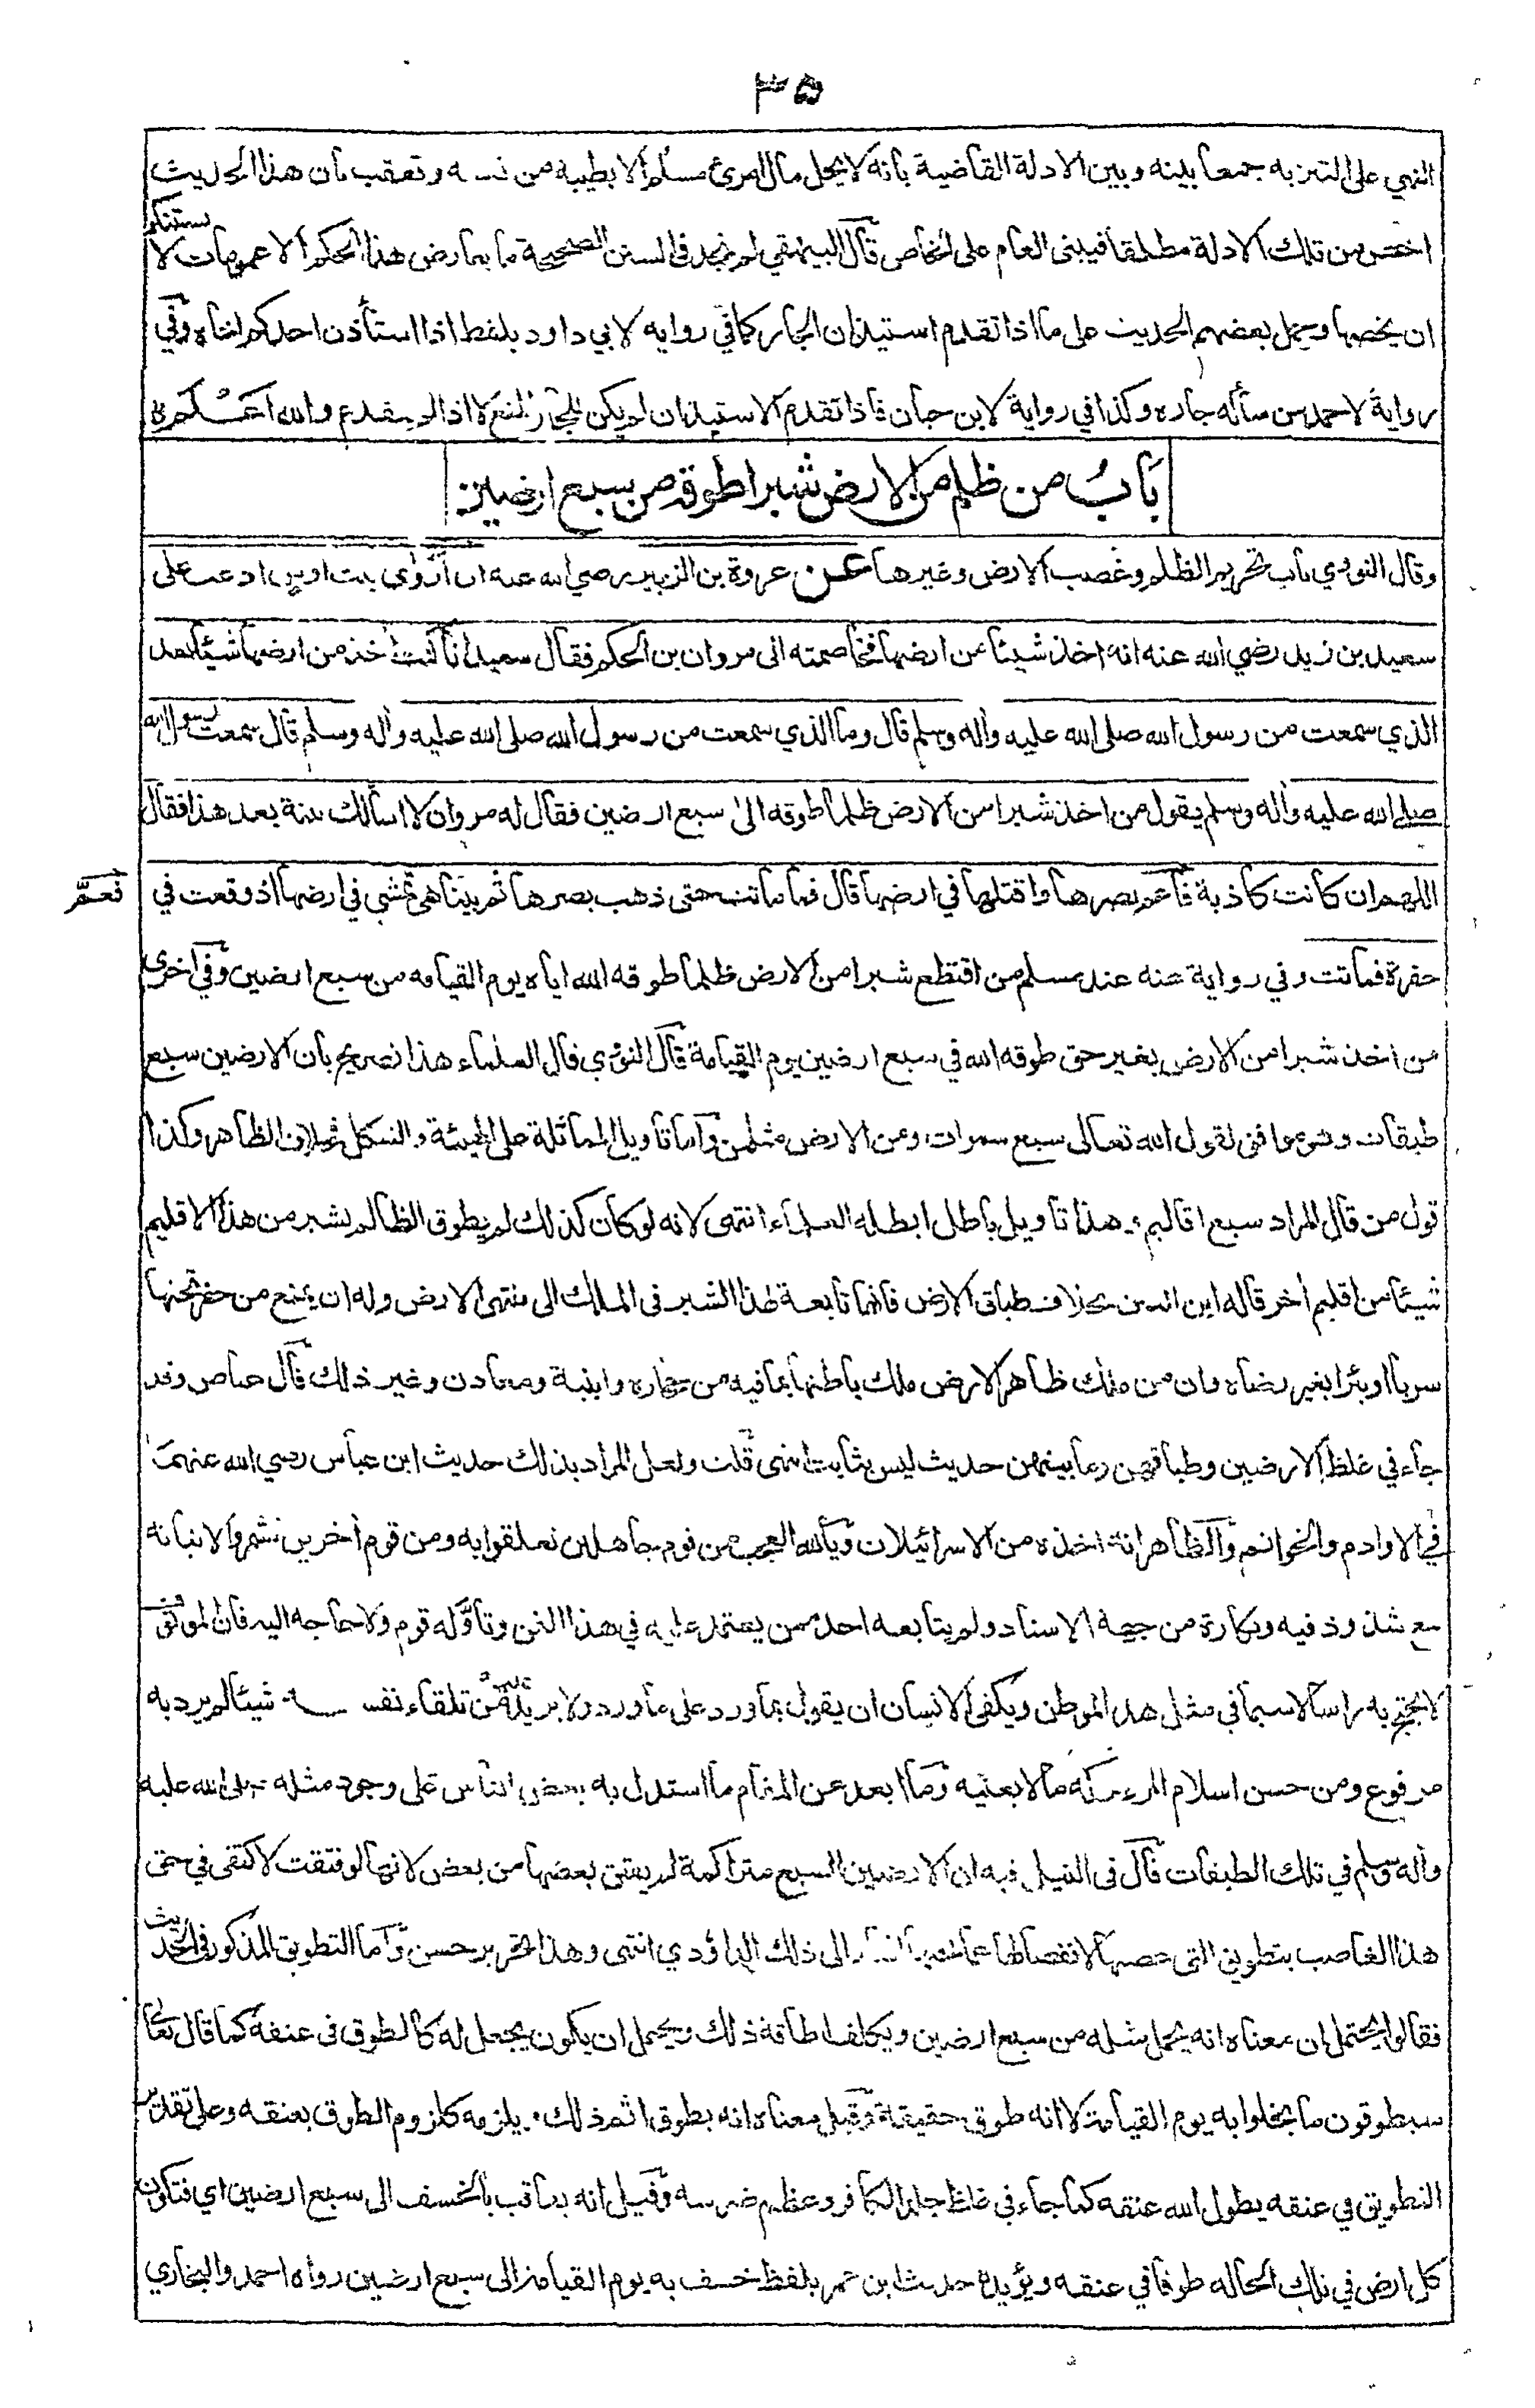 ٣٥
النهي على التنزيه جمعا بينه وبين الادلة القاضية بانه لا يحل مال امرئ مسلم الا بطيبة من نفسه وتعقب بان هذا الحديث
اخص من تلك الادلة مطلقا فيبنى العام على الخاص قال البيهقي لم نجد في السنن الصحيحة ما يعارض هذا الحكم الا عمومات لا يستنكر
ان يخصها وحمل بعضهم الحديث على ما اذا تقدم استيذان الجار كما في رواية لابي داود بلفظ اذا استأذن احدكم اخاه وفي
رواية لاحمد من سأله جاره وكذا في رواية لابن حبان فاذا تقدم الاستيذان لم يكن للجار المنع لا اذا لم يتقدم والله اعلم
باب من ظلم من الارض شبرا طوقه من سبع ارضين
وقال النووي باب تحريم الظلم وغصب الارض وغيرها عن عروة بن الزبير رضي الله عنه ان أروى بنت اويس ادعت على
سعيد بن زيد رضي الله عنه انه اخذ شيئا من ارضها فخاصمته الى مروان بن الحكم فقال سعيد انا كنت أخذ من ارضها شيئا بعد
الذي سمعت من رسول الله صلى الله عليه واله وسلم قال وما الذي سمعت من رسول الله صلى الله عليه واله وسلم قال سمعت رسول الله
صلى الله عليه واله وسلم يقول من اخذ شبرا من الارض ظلما طوقه الى سبع ارضين فقال له مروان لا اسألك بينة بعد هذا فقال
اللهم ان كانت كاذبة فأعم بصرها واقتلها في ارضها قال فما ماتت حتى ذهب بصرها ثم بينا هي تمشي في ارضها اذ وقعت في
فعمّ
حفرة فماتت وفي رواية عنه عند مسلم من اقتطع شبرا من الارض ظلما طوقه الله اياه يوم القيامه من سبع ارضين وفي اخرى
من اخذ شبرا من الارض بغير حق طوقه الله في سبع ارضين يوم القيامة قال النووي قال العلماء هذا تصريح بان الارضين سبع
طبقات وهو موافق لقول الله تعالى سبع سموات ومن الارض مثلهن واما تاويل المماثلة على الهيئة والشكل فخلاف الظاهر وكذا
قول من قال المراد سبع اقاليم هذا تاويل باطل ابطله العلماء انتهى لانه لو كان كذلك لم يطوق الظالم بشبر من هذا الاقليم
شيئا من اقليم أخر قاله ابن التين بخلاف طباق الارض فانها تابعة لهذا الشبر في الملك الى منتهى الارض وله ان يمنع من حفر تحتها
سربا او بئرا بغير رضاه وان من ملك ظاهر الارض ملك باطنها بما فيه من حجاره وابنية ومعادن وغير ذلك قال عياض وقد
جاء في غلظ الارضين وطباقهن وما بينهن حديث ليس بثابت انتهى قلت ولعل المراد بذلك حديث ابن عباس رضي الله عنهما
في الاوادم والخواتم والظاهر انه اخذه من الاسرائيلات ويالله العجب من قوم جاهلين تعلقوا به ومن قوم أخرين تشمروا لاثباته
مع شذوذ فيه ونكارة من جهة الاسناد ولم يتابعه احد ممن يعتمد عليه في هذا الفن وتأوّله قوم ولا حاجه اليه فان الموقوف
لا يحتج به راسا لا سيما في مثل هذا الموطن ويكفي الانسان ان يقول بما ورد على ما ورد ولا يزيد عليه من تلقاء نفسه شيئا لم يرد به
مرفوع ومن حسن اسلام المرء تركه ما لا يعنيه وما ابعد عن المقام ما استدل به بعض الناس على وجود مثله صلى الله عليه
واله وسلم في تلك الطبقات قال في النيل فيه ان الارضين السبع متراكمة لم يفتق بعضها من بعض لانها لو فتقت لاكتفى في حق
هذا الغاصب بتطويق التي غصبها لانفصالها عما تحتها اشار الى ذلك الداؤدي انتهى وهذا تقرير حسن واما التطويق المذكور في الحديث
فقالوا يحتمل ان معناه انه يحمل مثله من سبع ارضين ويكلف اطاقة ذلك ويحتمل ان يكون يجعل له كالطوق في عنقه كما قال تعالى
سيطوقون ما بخلوا به يوم القيامة لا انه طوق حقيقة وقيل معناه انه يطوق اثم ذلك ويلزمه كلزوم الطوق بعنقه وعلى تقدير
التطويق في عنقه يطول الله عنقه كما جاء في غلظ جلد الكافر وعظم ضرسه وقيل انه يعاقب بالخسف الى سبع ارضين اي فتكون
كل ارض في تلك الحاله طوقا في عنقه ويؤيده حديث ابن عمر بلفظ خسف به يوم القيامة الى سبع ارضين رواه احمد والبخاري